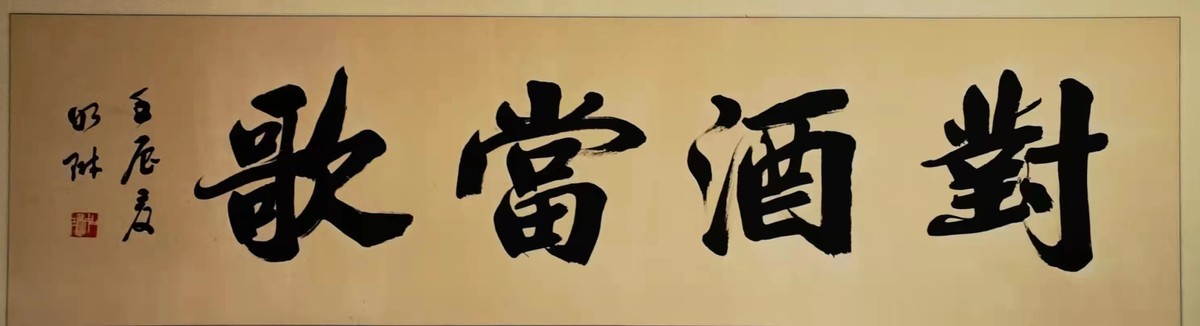 對酒當歌
壬辰夏
明琳